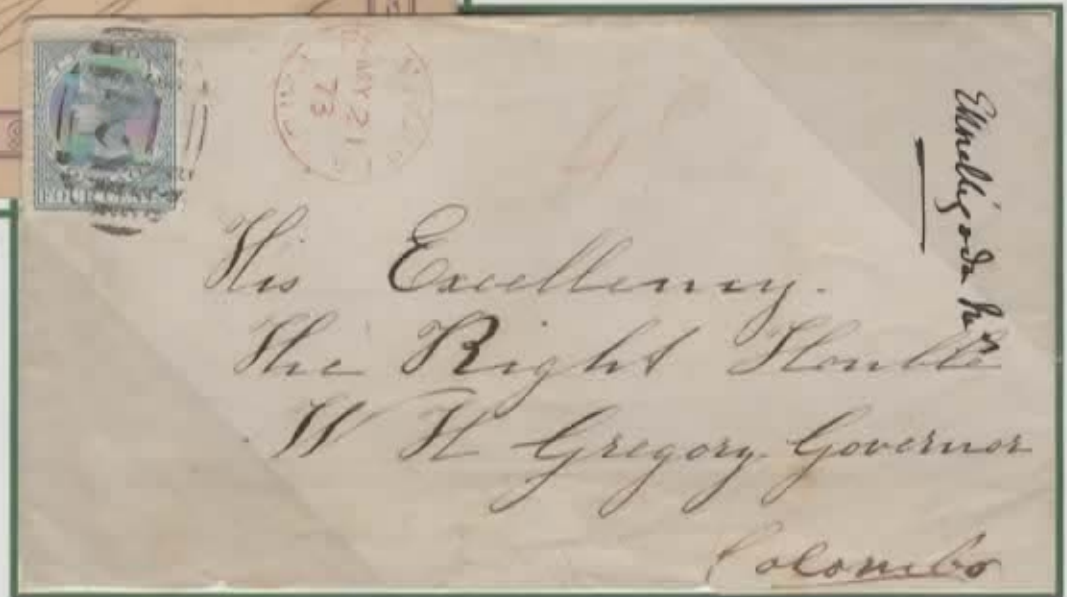 FOUR CENTS
MY 21
73
His Excellency.
The Right Honble
W H Gregory Governor
Colombo